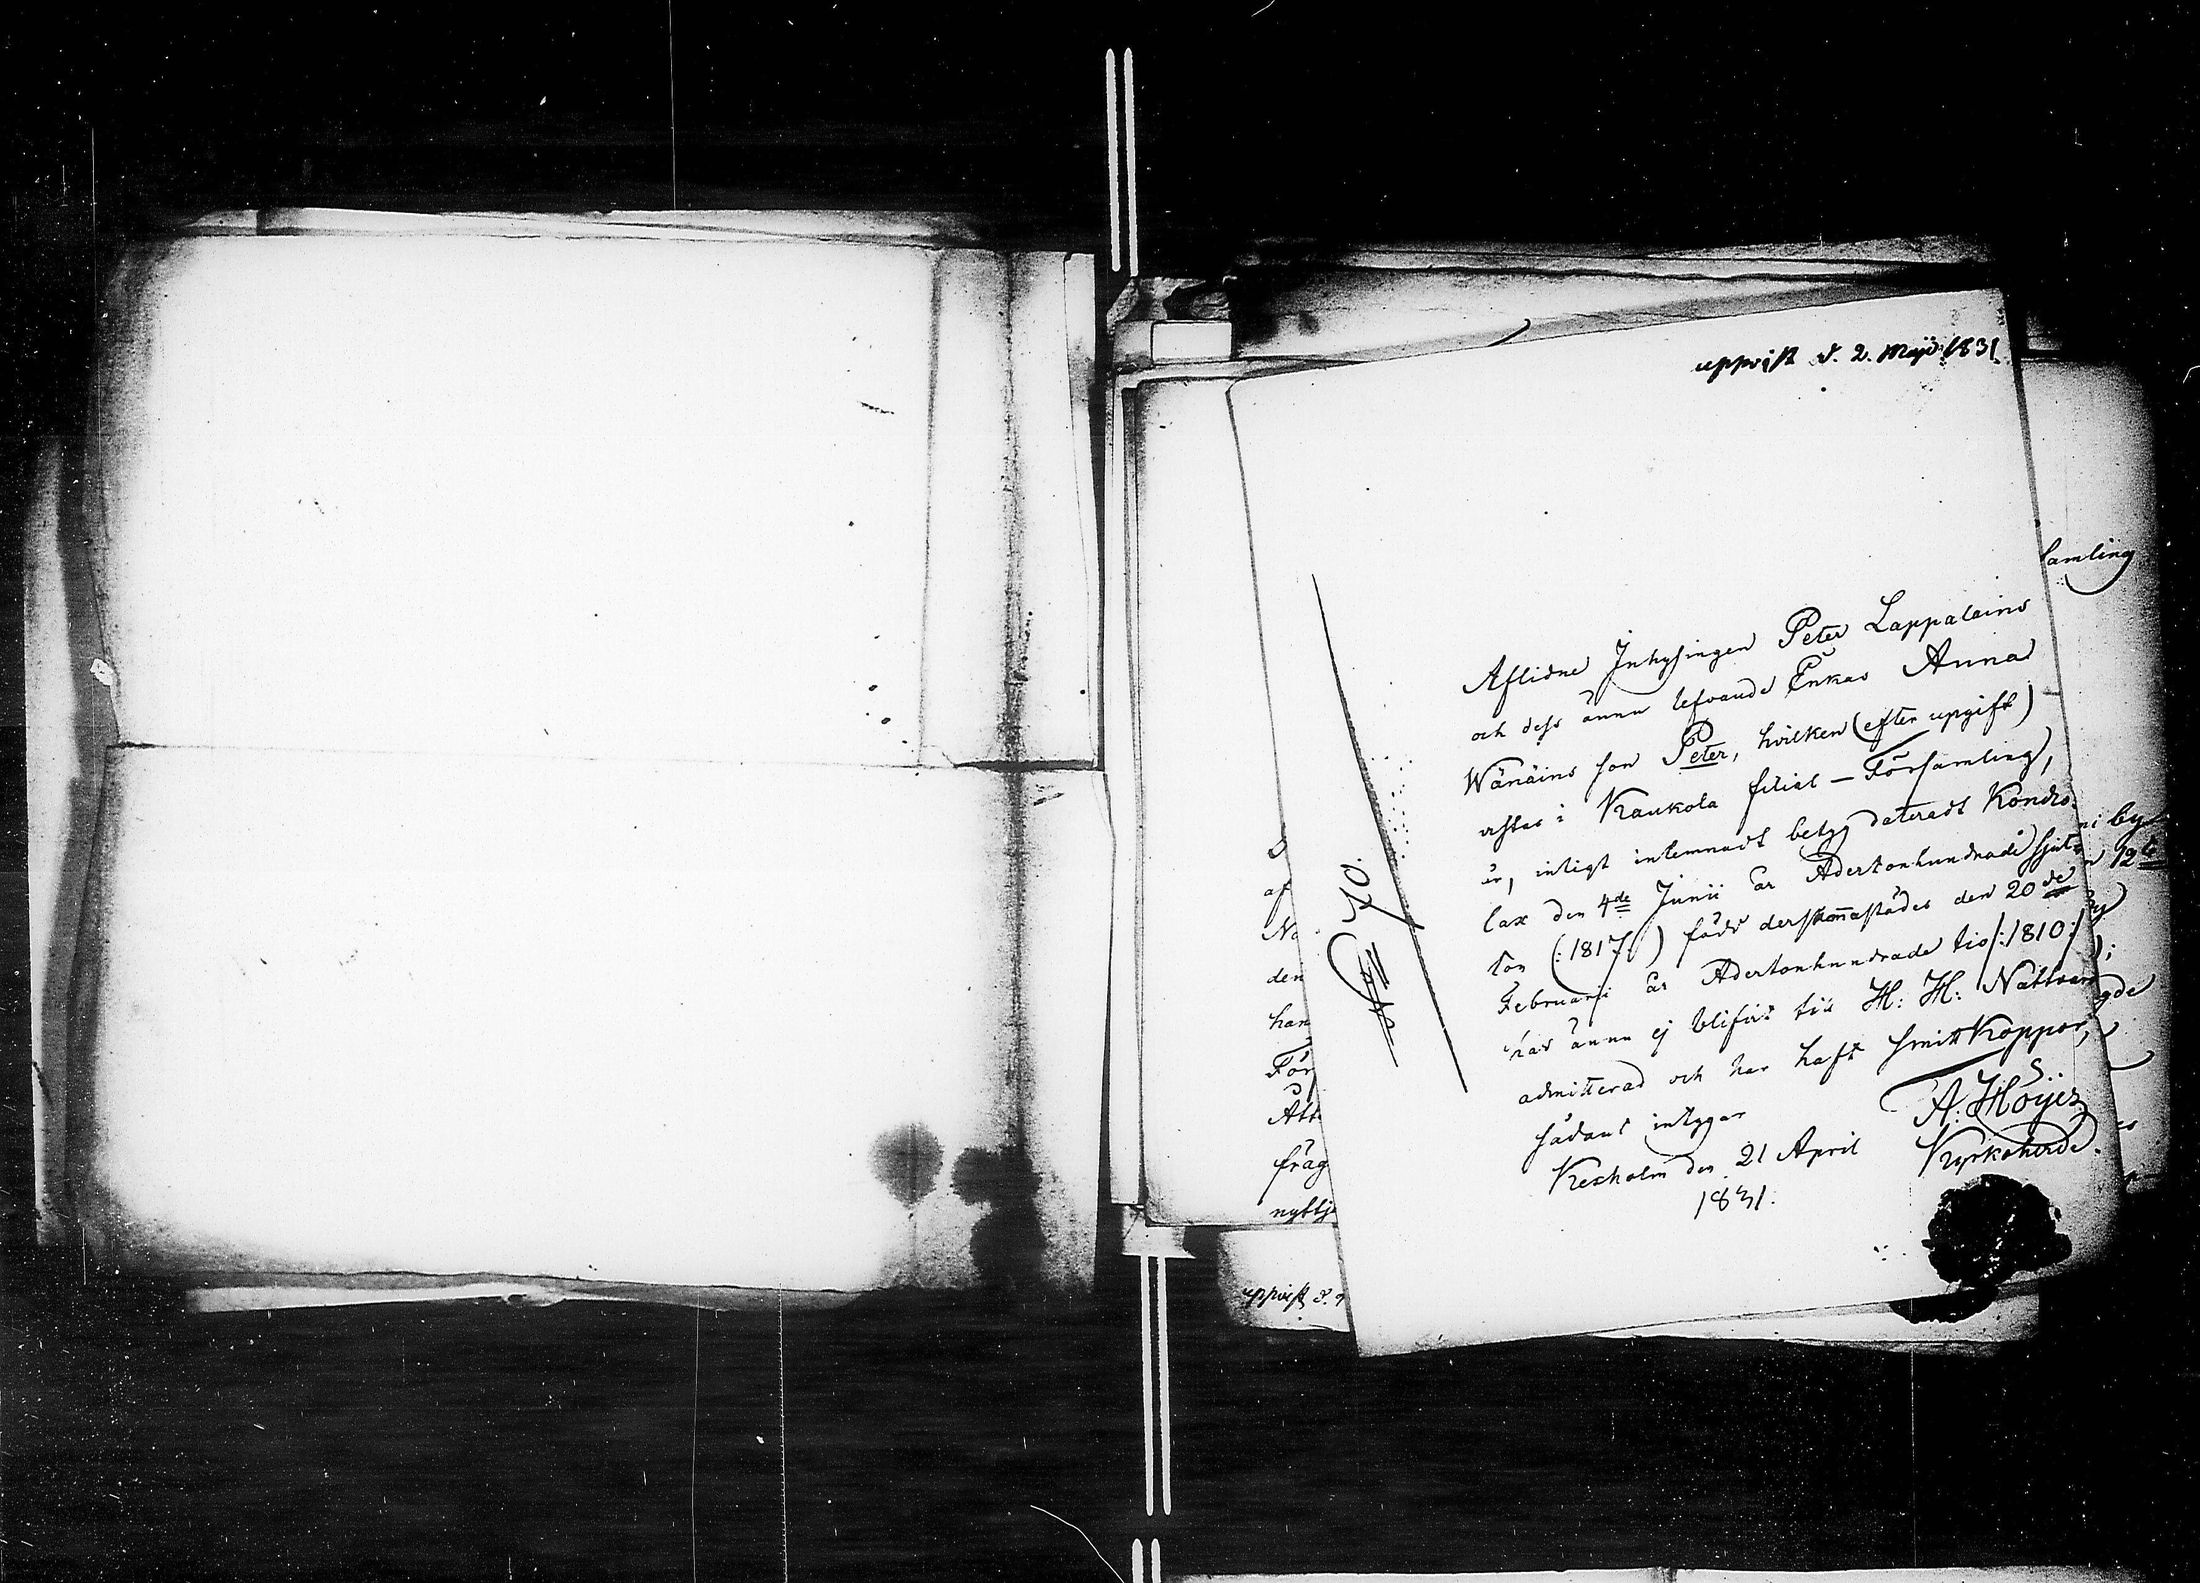 uppvist d. 2. Maji 1831
samling
Aflidne Inhysingen Peter Lappalains
och dess ännu lefvande Enkas Anna
Wänäins son Peter, hvilken (efter upgift)
vistas i Kaukola filial-Församling,
är, enligt inlemnadt betyg dateradt Kondro
lax den 4de Junii år Adertonhundrade sjut
ton (:1817:) född derstammastädes den 20de
Februarii år Adertonhundrade tio (:1810:)
har ännu ej blifvit till H: H: Nattvard
admitterad och har haft smittkoppor,
sådant intygar
Kexholm den 21 April
1831.
A: Höijer
Kyrkoherde.
No 70.
by
12te
gde
af
No
den
han
För
Att
fråg
nyttj
uppvist d.